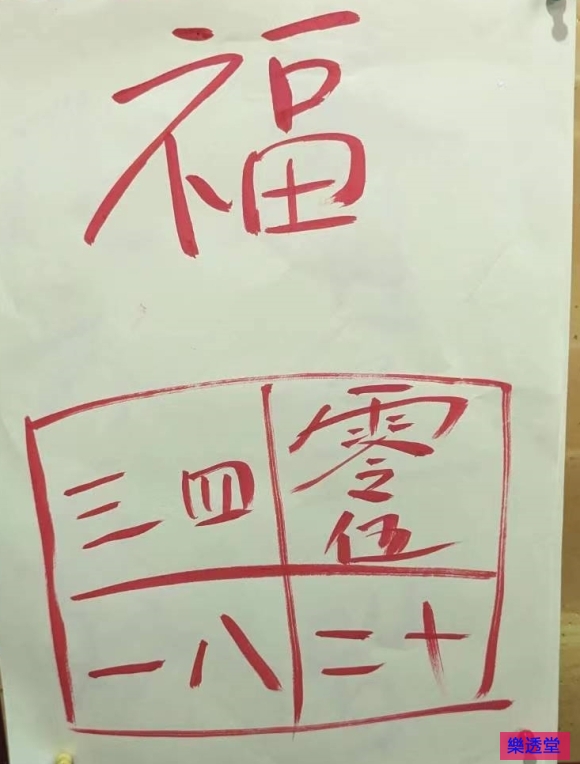 福
三四 零伍
一八 二十
樂透堂